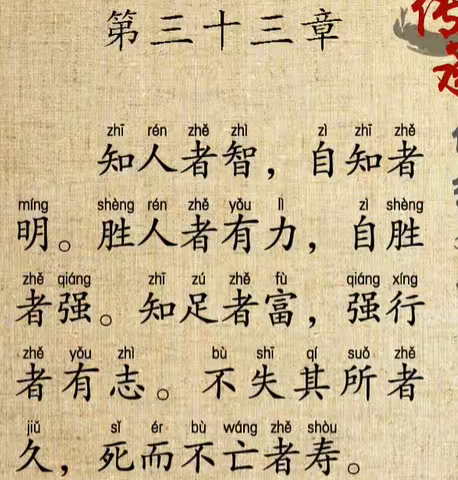 第三十三章
zhī rén zhě zhì zì zhī zhě
知人者智，自知者
míng shèng rén zhě yǒu lì zì shèng
明。胜人者有力，自胜
zhě qiáng zhī zú zhě fù qiáng xíng
者强。知足者富，强行
zhě yǒu zhì bù shī qí suǒ zhě
者有志。不失其所者
jiǔ sǐ ér bù wáng zhě shòu
久，死而不亡者寿。
传承